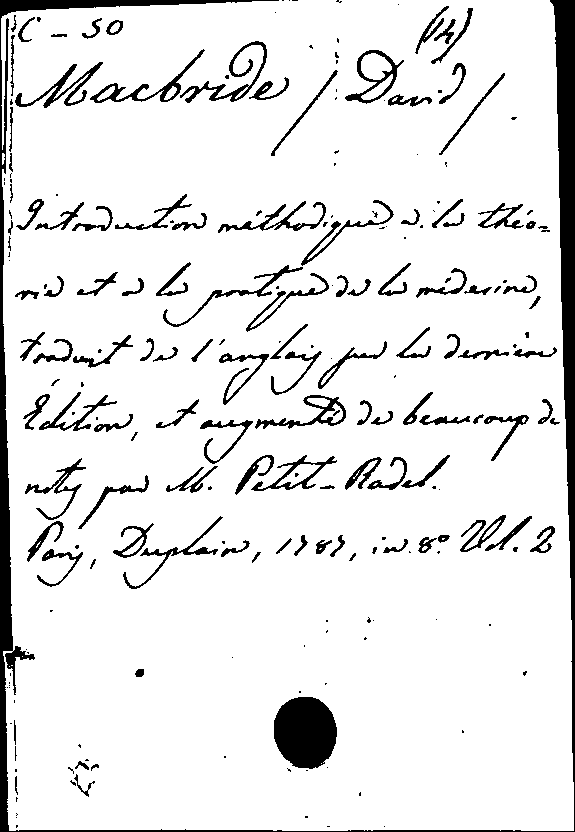 C - 50 (14)
Macbride / David /
Introduction méthodique à la théo=
rie et à la pratique de la médecine,
traduit de l'anglais par la dernière
Édition, et augmenté de beaucoup de
notes par M. Petit-Radel.
Paris, Duplain, 1787, in 8º. Vol. 2